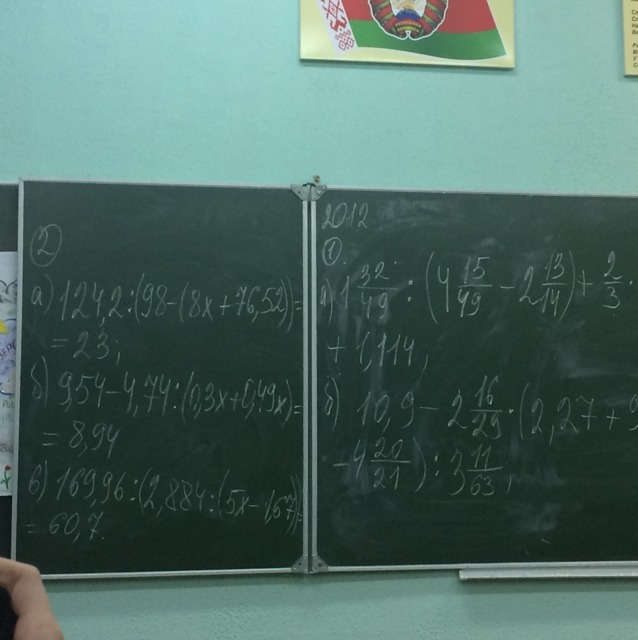 ②
а) 124,2:(98-(8x+76,52))=
= 23;
б) 9,54-4,74:(0,3x+0,49x)=
= 8,94
в) 169,96:(2,884:(5x-1,67))
= 60,7.
20.12
①.
а) 1 32/49 : (4 15/49 - 2 13/14) + 2/3 ·
+ 1,114;
б) 10,9 - 2 16/29 · (2,27 + 9
- 4 20/21) : 3 11/63;